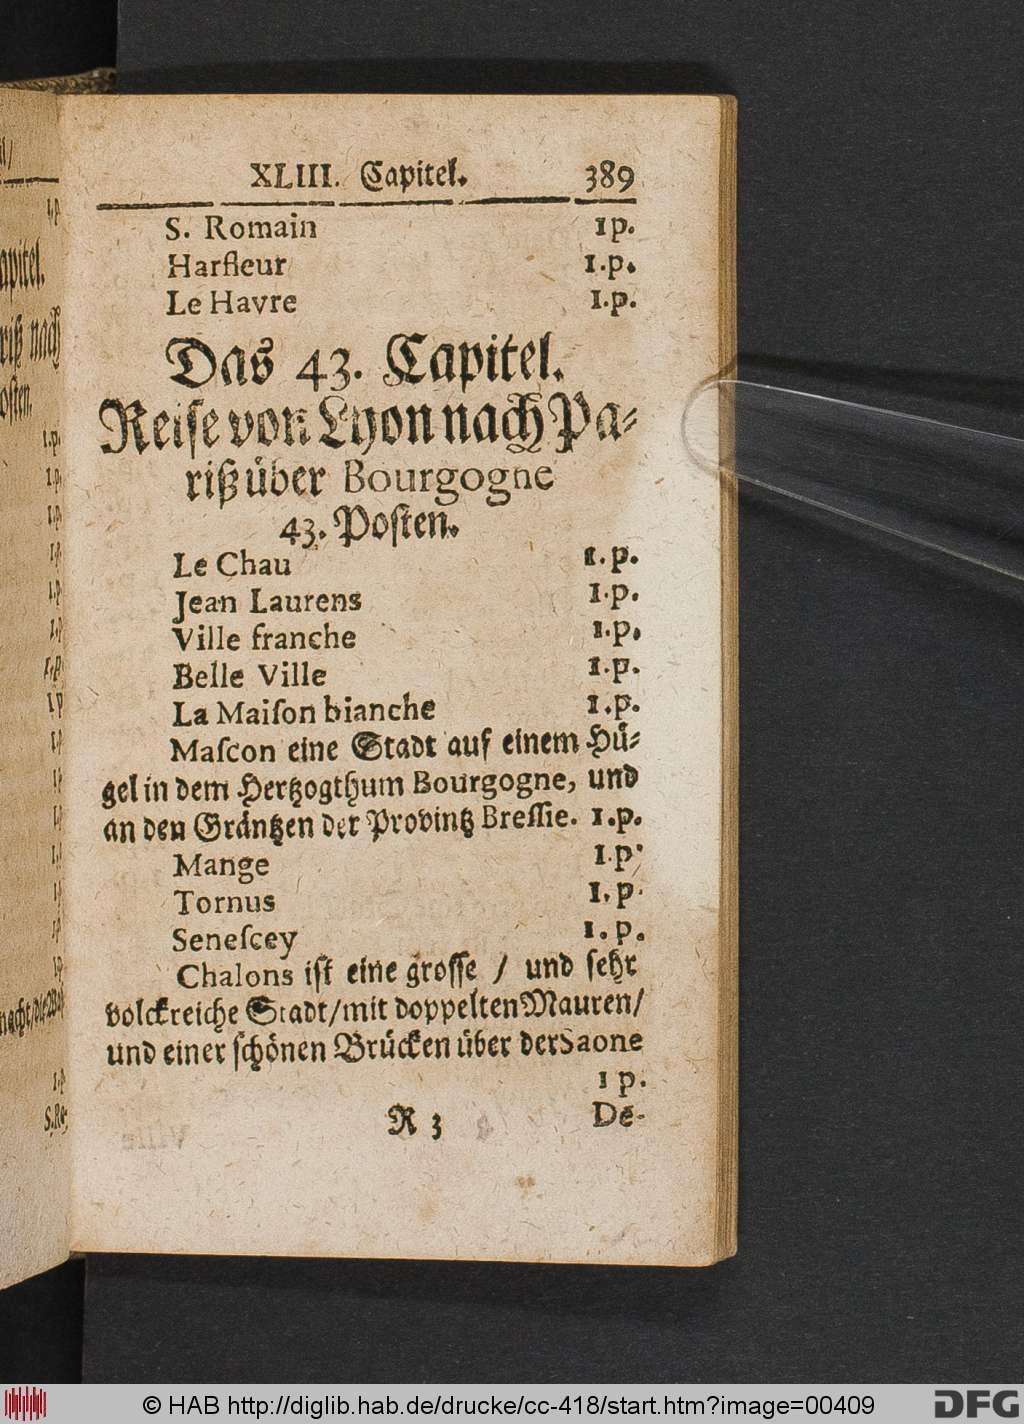 XLIII. Capitel. 389
S. Romain 1 p.
Harfleur 1.p.
Le Havre 1.p.
Das 43. Capitel.
Reise von Lyon nach Pa⸗
riß über Bourgogne
43. Posten.
Le Chau 1.p.
Jean Laurens 1.p.
Ville franche 1.p.
Belle Ville 1.p.
La Maiſon bianche 1.p.
Maſcon eine Stadt auf einem Hü⸗
gel in dem Hertzogthum Bourgogne, und
an den Gräntzen der Provintz Breſſie. 1.p.
Mange 1.p.
Tornus 1.p.
Seneſcey 1.p.
Chalons iſt eine groſſe / und ſehr
volckreiche Stadt / mit doppelten Mauren /
und einer ſchönen Brücken über der Saone
1 p.
R 3 De-
© HAB http://diglib.hab.de/drucke/cc-418/start.htm?image=00409
DFG